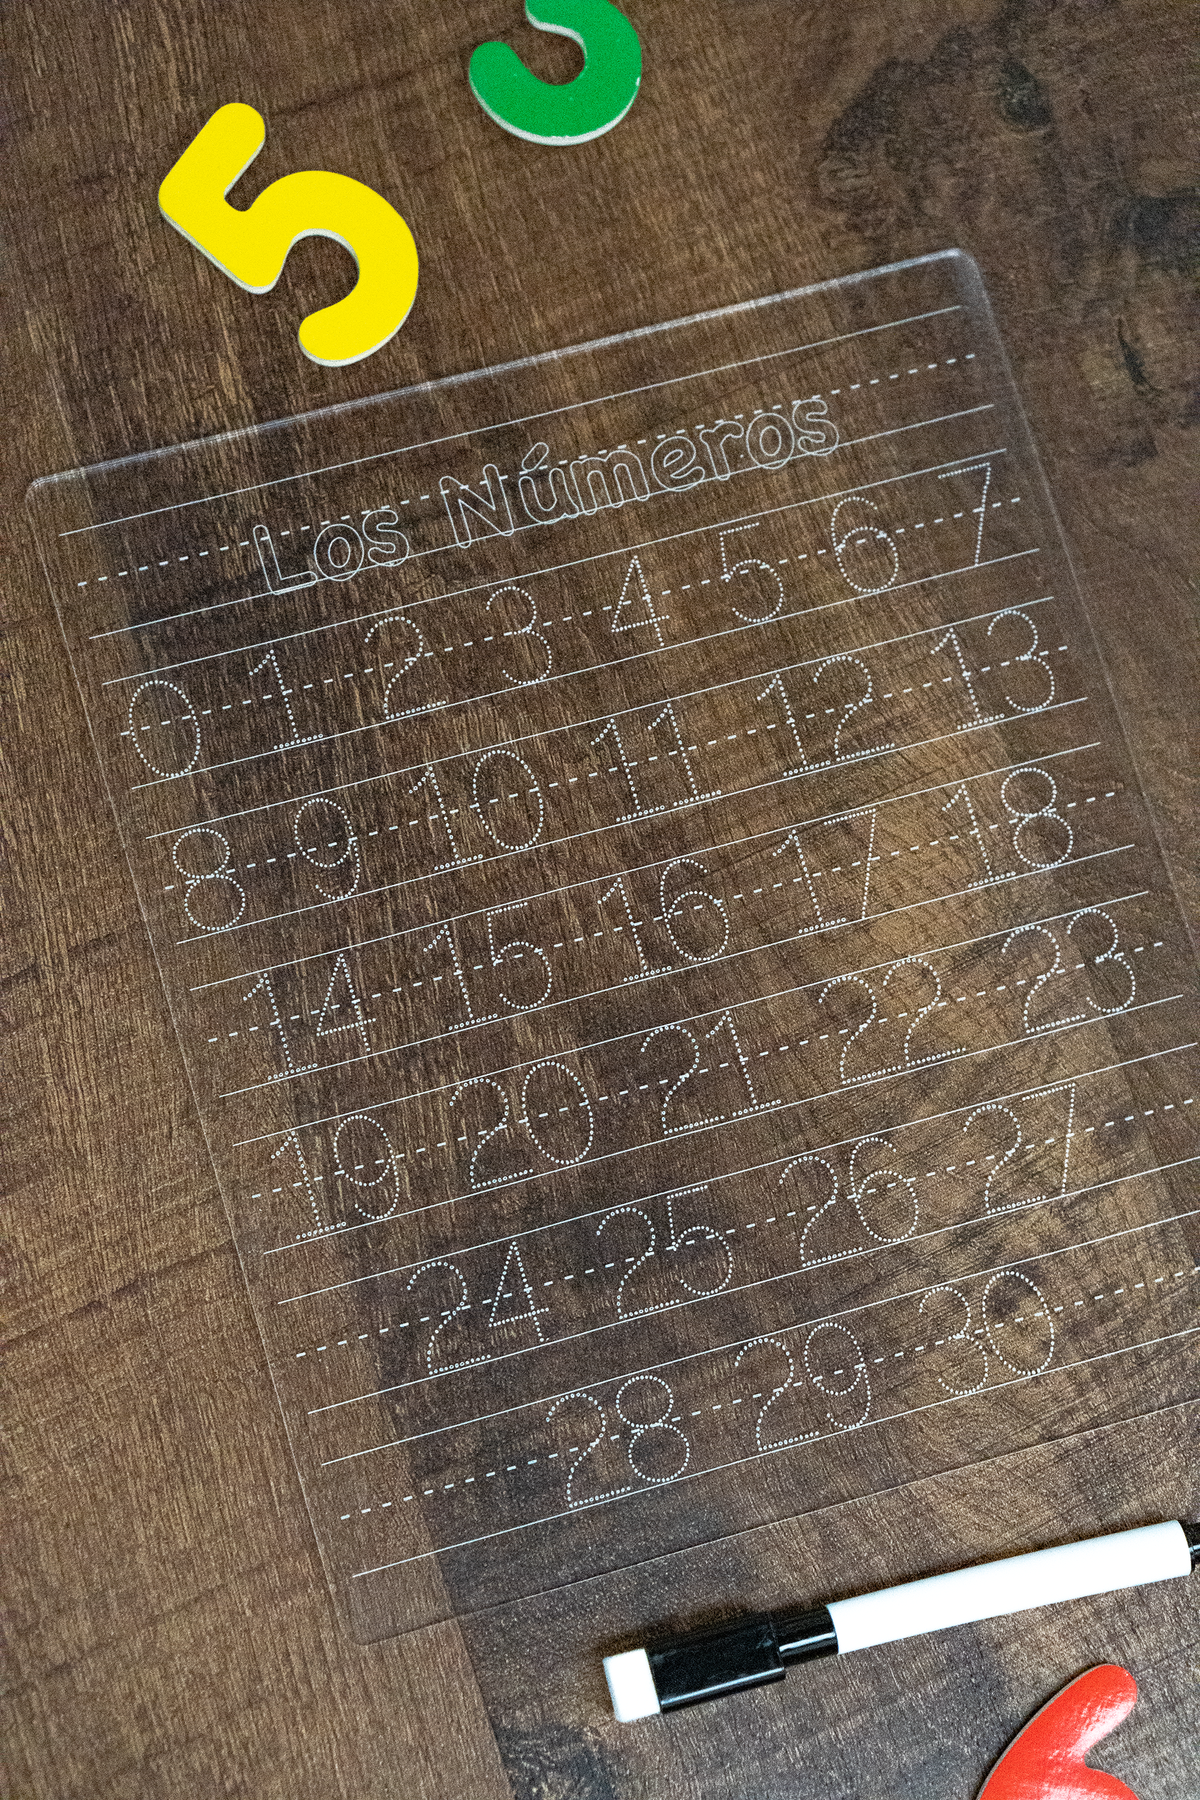 5
Los Números
0 1 2 3 4 5 6 7
8 9 10 11 12 13
14 15 16 17 18
19 20 21 22 23
24 25 26 27
28 29 30